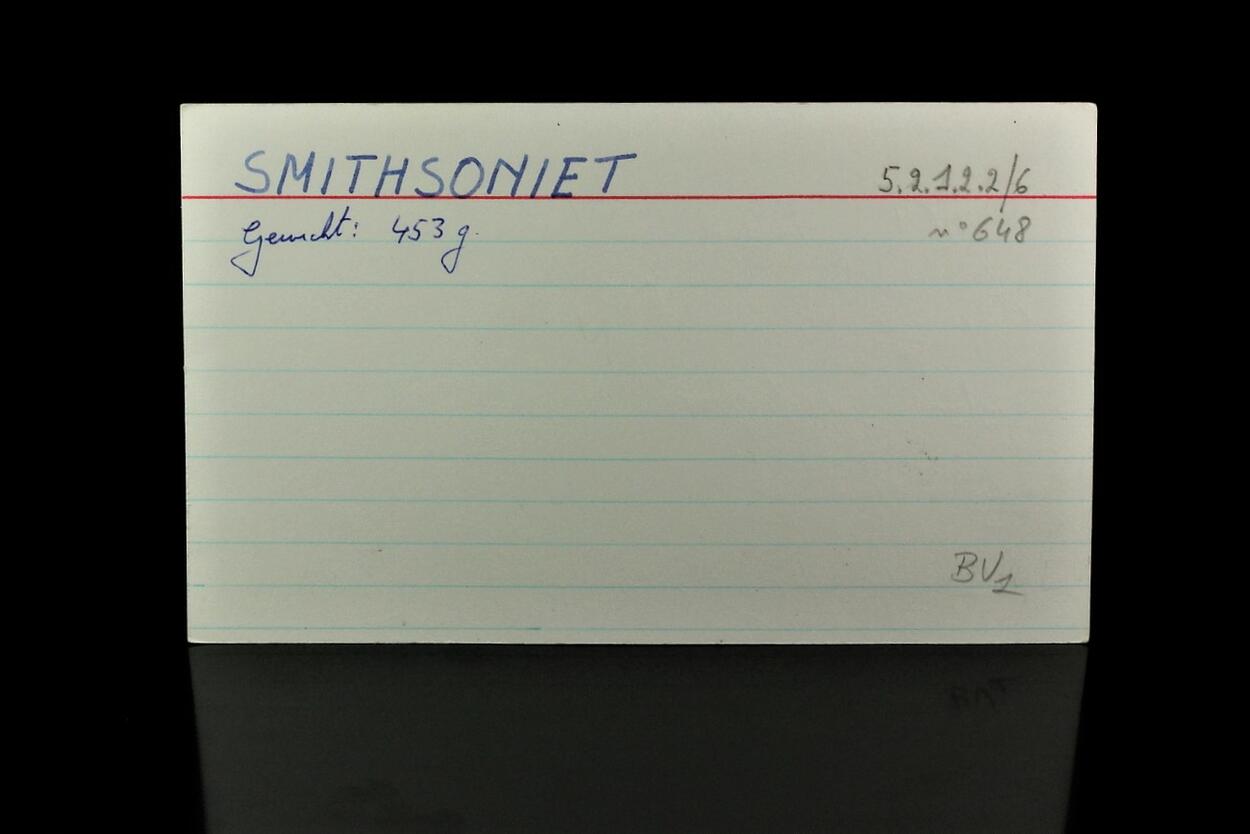 SMITHSONIET 5.2.1.2.2/6
Gewicht: 453 g. n°648
BV1